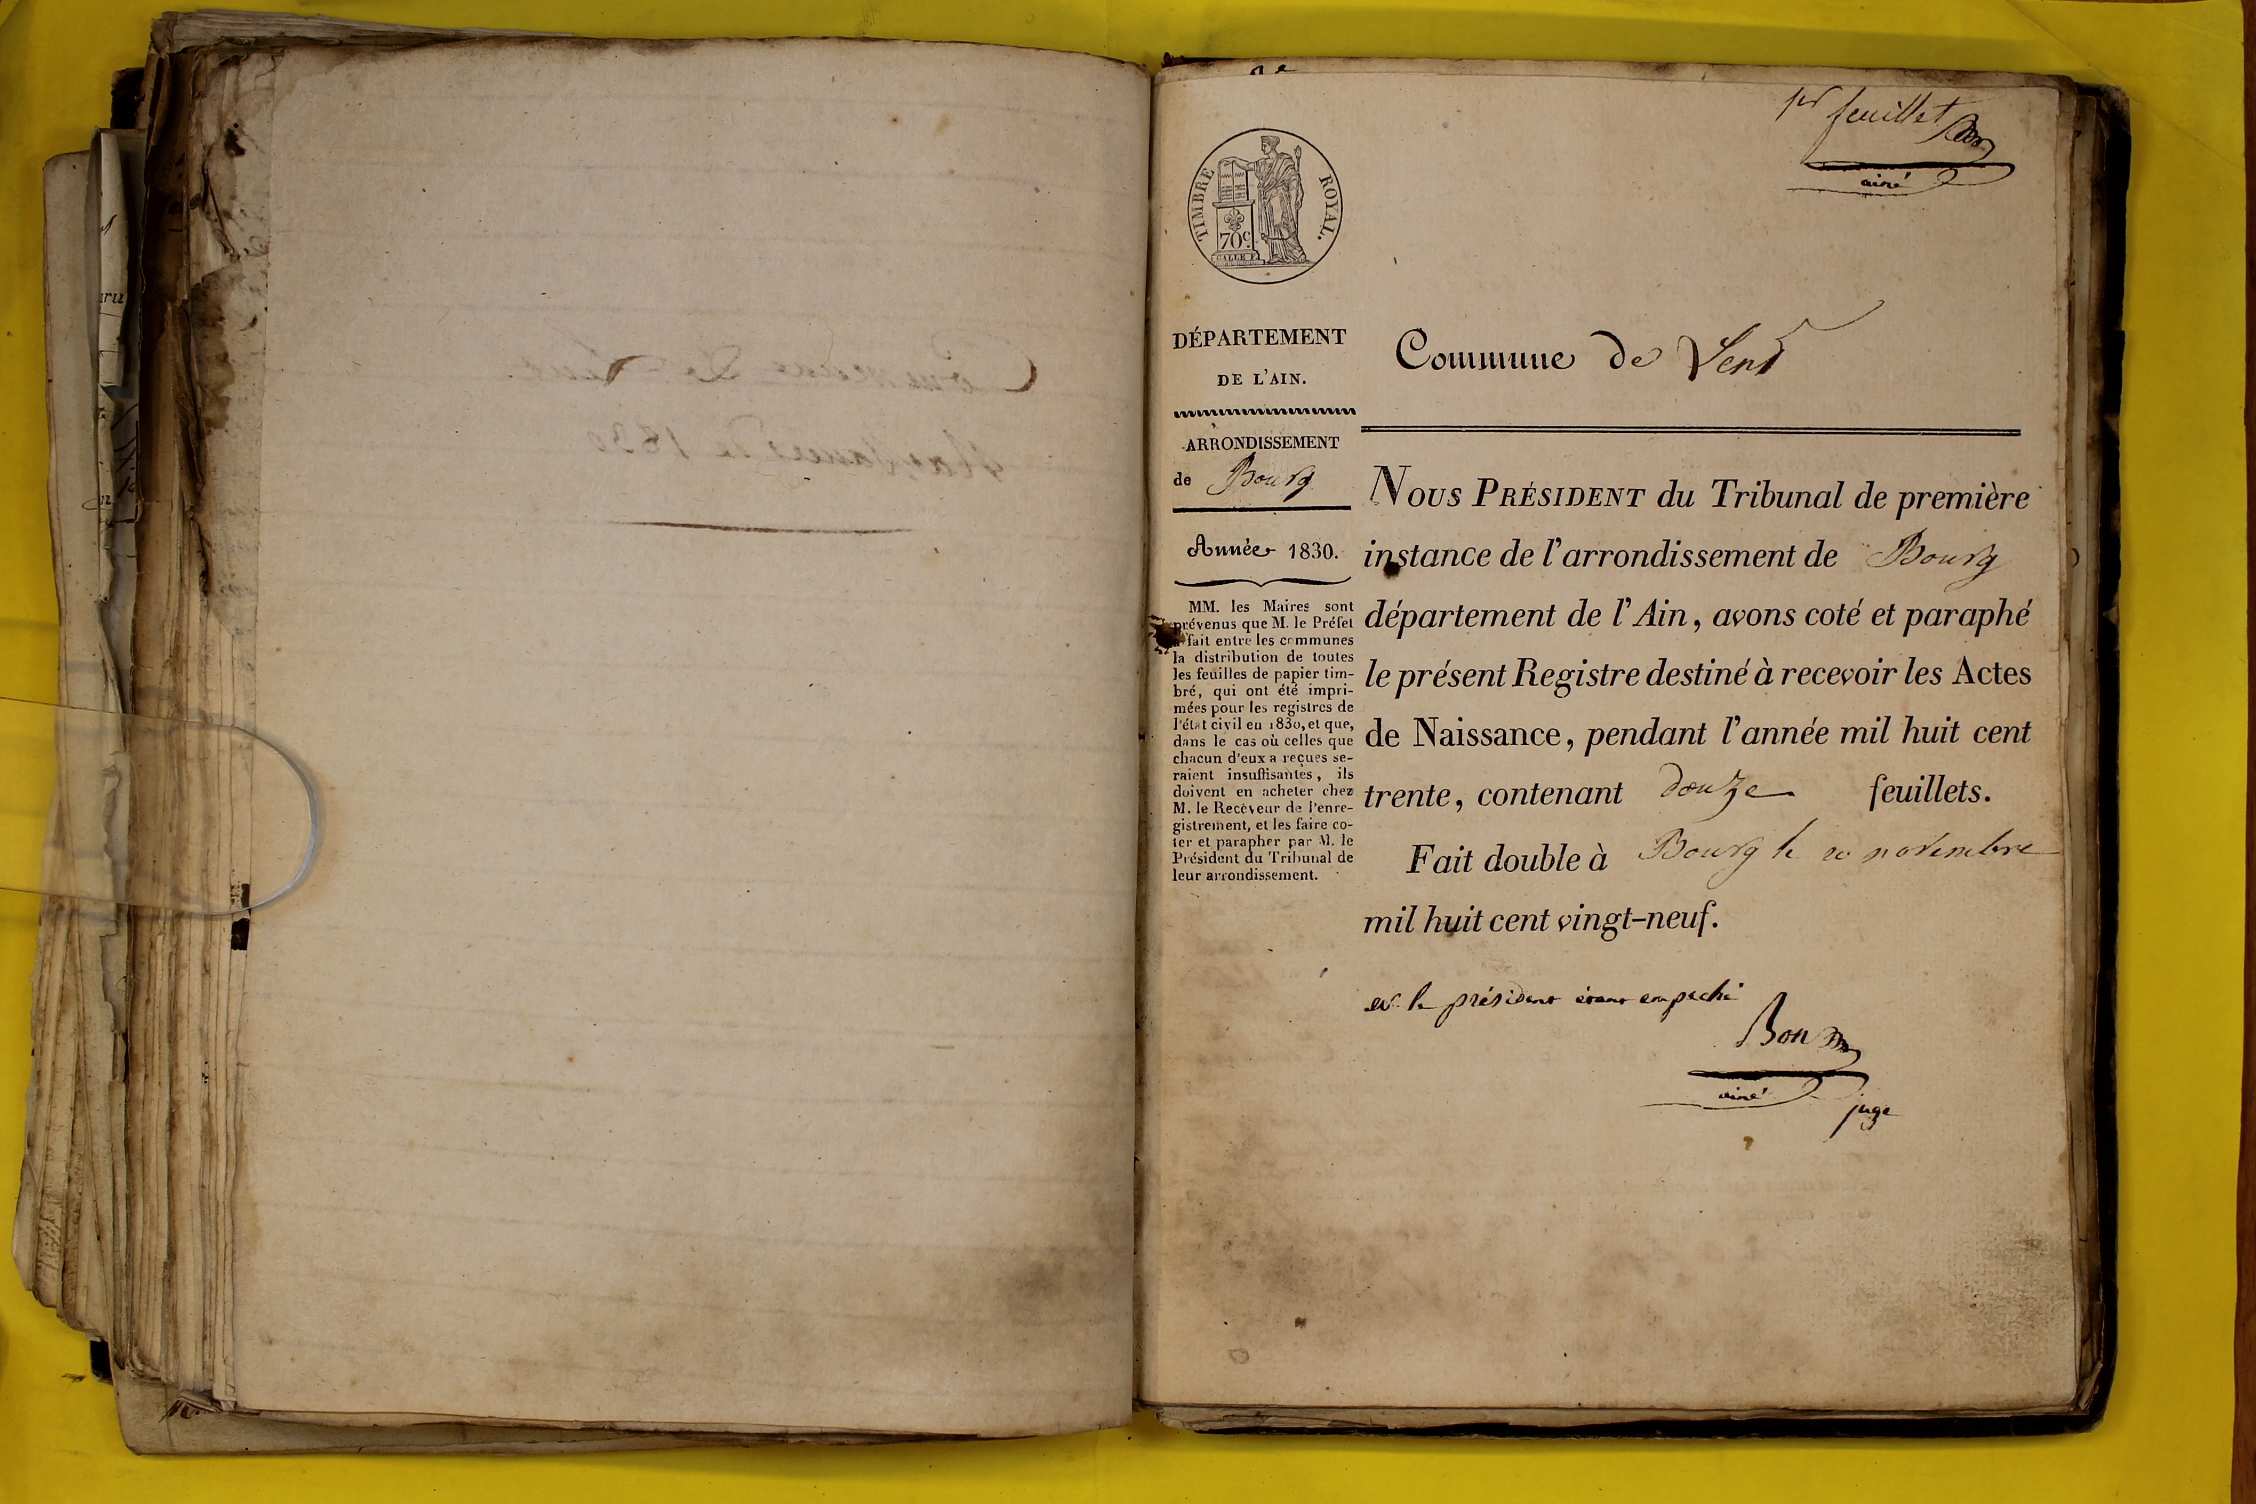 1er feuillet
ainé
TIMBRE ROYAL.
70c
DÉPARTEMENT
DE L'AIN.
ARRONDISSEMENT
de Bourg
Année 1830.
MM. les Maires sont
prévenus que M. le Préfet
a fait entre les communes
la distribution de toutes
les feuilles de papier tim-
bré, qui ont été impri-
mées pour les registres de
l'état civil en 1830, et que,
dans le cas où celles que
chacun d'eux a reçues se-
raient insuffisantes, ils
doivent en acheter chez
M. le Recéveur de l'enre-
gistrement, et les faire co-
ter et parapher par M. le
Président du Tribunal de
leur arrondissement.
Commune de
NOUS PRÉSIDENT du Tribunal de première
instance de l'arrondissement de Bourg
département de l'Ain, avons coté et paraphé
le présent Registre destiné à recevoir les Actes
de Naissance, pendant l'année mil huit cent
trente, contenant douze feuillets.
Fait double à Bourg le 20 novembre
mil huit cent vingt-neuf.
le président étant empeché
Bon
ainé
juge